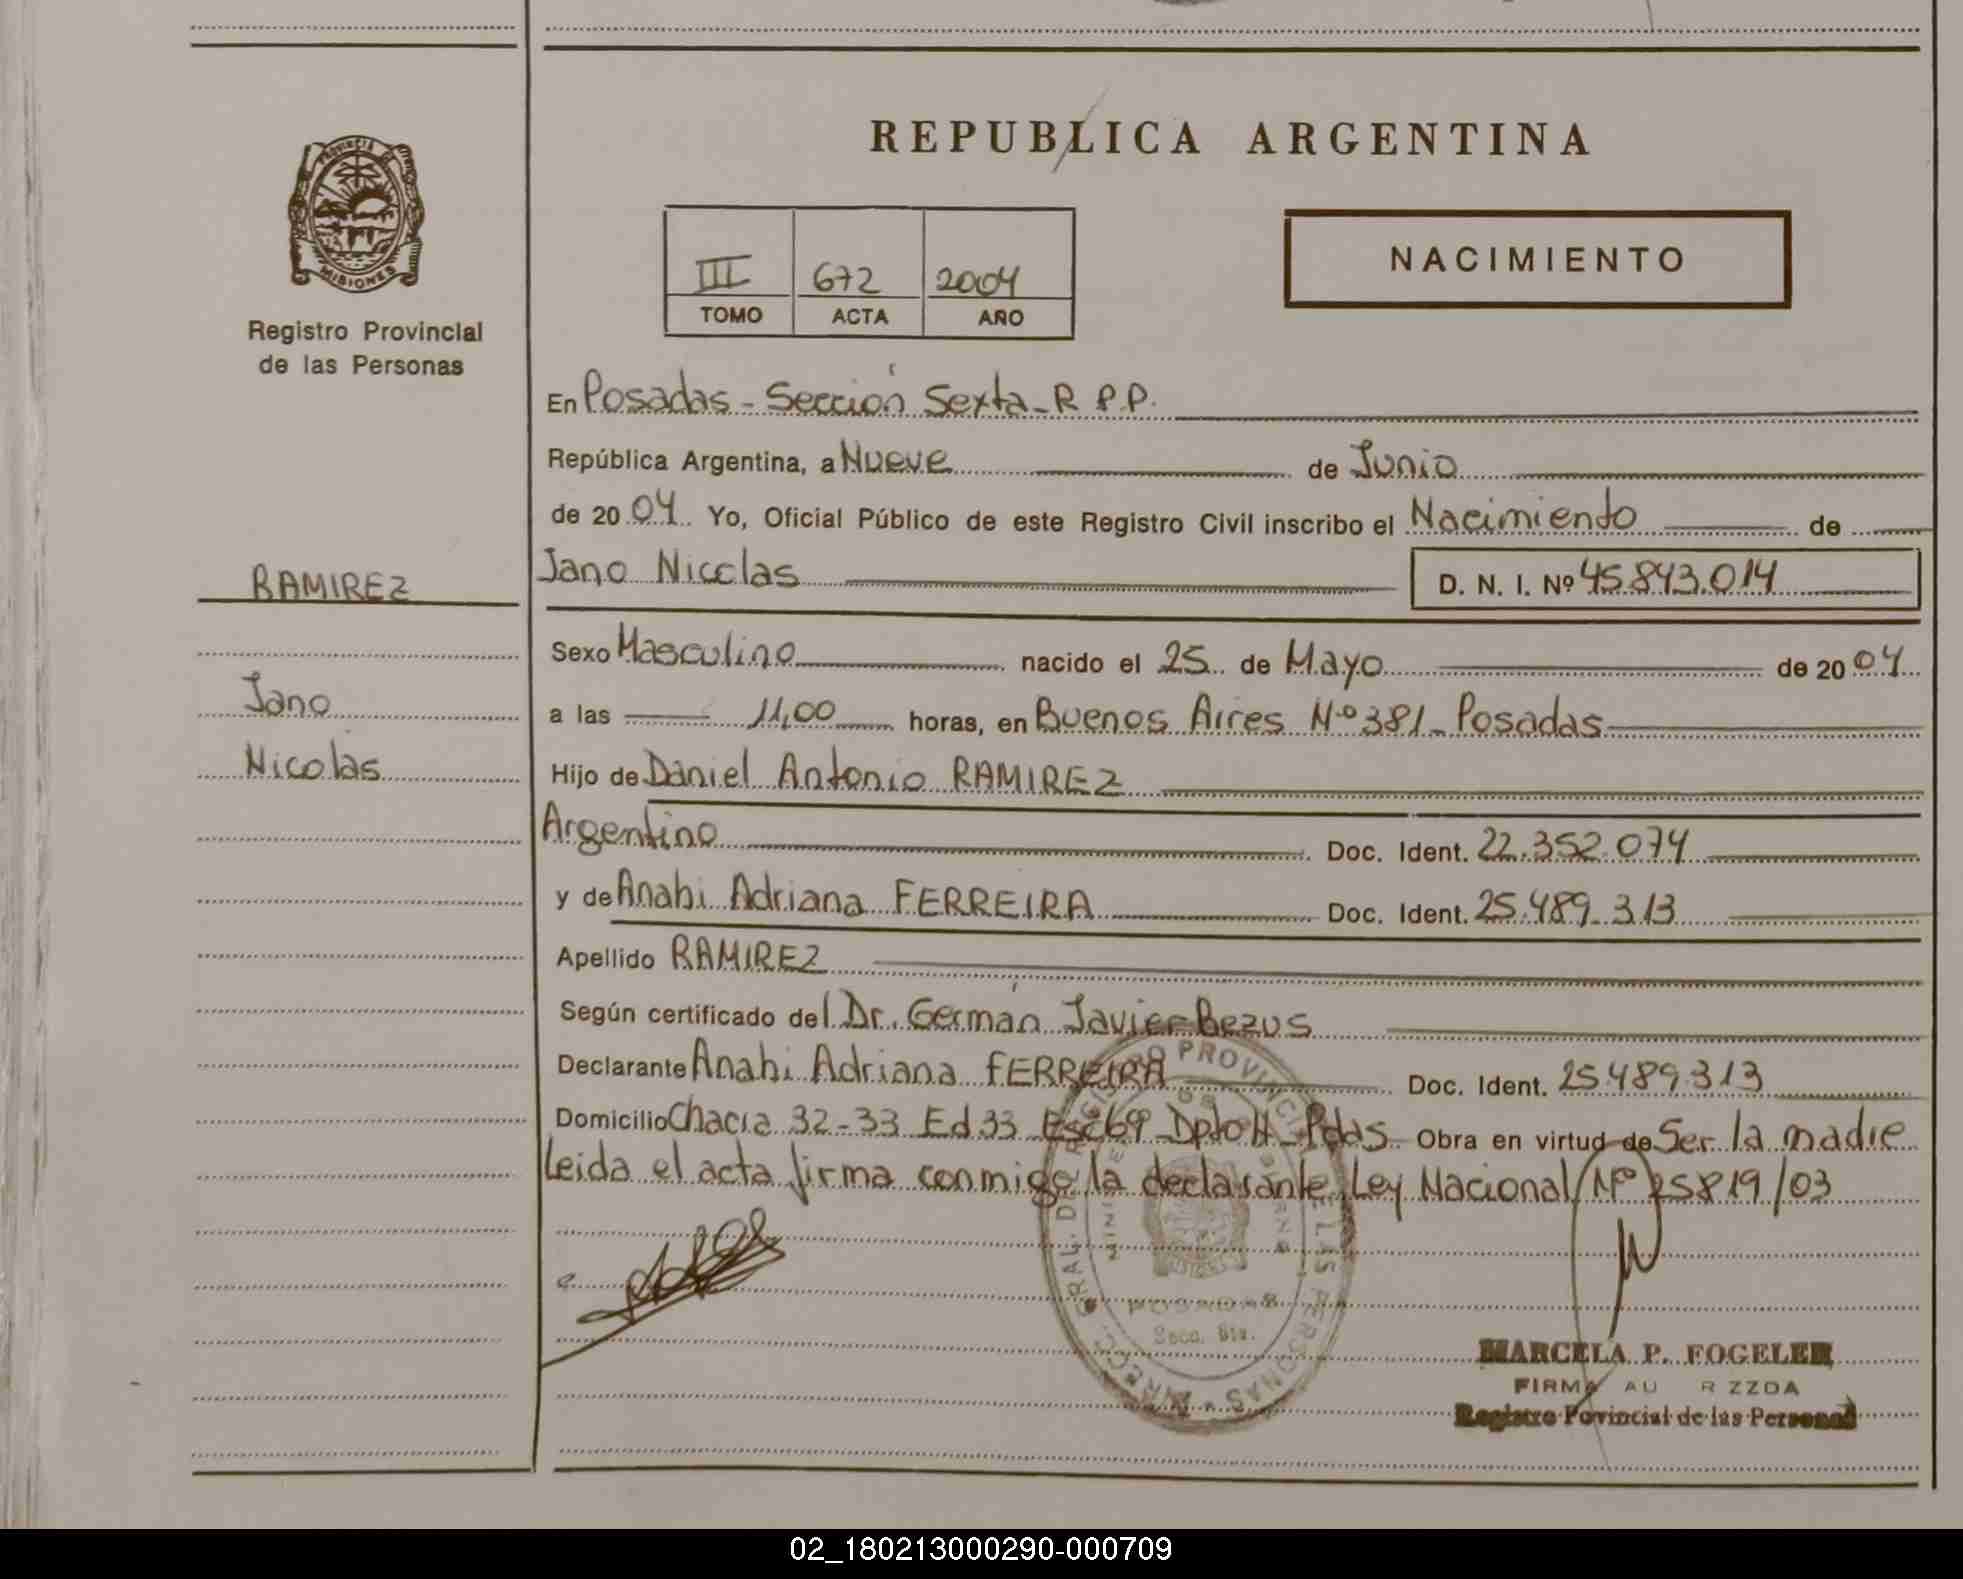 REPUBLICA ARGENTINA
PROVINCIA DE MISIONES
Registro Provincial
de las Personas
III 672 2004
TOMO ACTA AÑO
NACIMIENTO
En Posadas - Sección Sexta - R P.P.
República Argentina, a Nueve de Junio
de 2004 Yo, Oficial Público de este Registro Civil inscribo el Nacimiento de
Jano Nicolas D. N. I. Nº 45.843.014
RAMIREZ
Jano
Nicolás
Sexo Masculino nacido el 25 de Mayo de 2004
a las 11,00 horas, en Buenos Aires Nº 381 - Posadas
Hijo de Daniel Antonio RAMIREZ
Argentino Doc. Ident. 22.352.074
y de Anahi Adriana FERREIRA Doc. Ident. 25.489.313
Apellido RAMIREZ
Según certificado del Dr. Germán Javier Bezus
Declarante Anahi Adriana FERREIRA Doc. Ident. 25489313
Domicilio Chacra 32-33 Ed 33 Esc 69 Dpto H - Pdas Obra en virtud de Ser la madre
Leida el acta firma conmigo la declarante Ley Nacional Nº 25819/03
DIRECC. GRAL. DE REGISTRO PROVINCIAL DE LAS PERSONAS
POSADAS
Secc. 6ta.
MARCELA P. FOGELER
FIRMA AU R ZZDA
Registro Povincial de las Personas
02_180213000290-000709